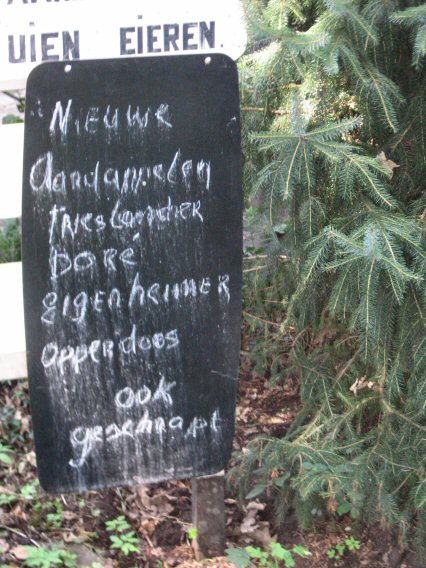 UIEN EIEREN.
Nieuwe
Aardappelen
Frieslander
DORÉ
EIGENHEIMER
opperdoes
OOK
geschrapt